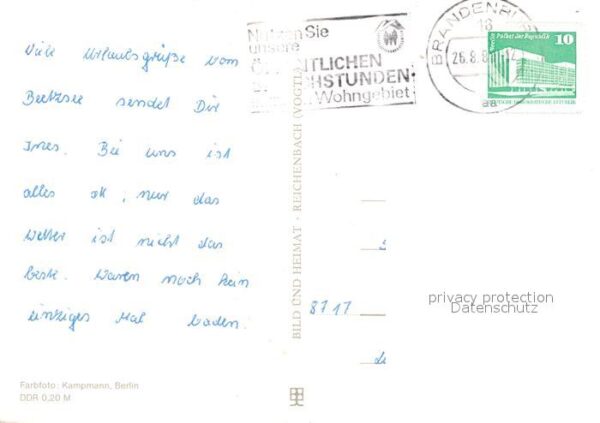 Nutzen Sie
unsere
ÖFFENTLICHEN
SPRECHSTUNDEN
Wohngebiet
BRANDENBURG
18
26.8.8
aa
Palast der Republik
10
DEUTSCHE DEMOKRATISCHE REPUBLIK
Viele Urlaubsgrüße vom
Beetzsee sendet Dir
Ines. Bei uns ist
alles ok, nur das
Wetter ist nicht das
beste. Waren noch kein
einziges Mal baden.
BILD UND HEIMAT · REICHENBACH (VOGTL)
8717
privacy protection
Datenschutz
Farbfoto: Kampmann, Berlin
DDR 0,20 M